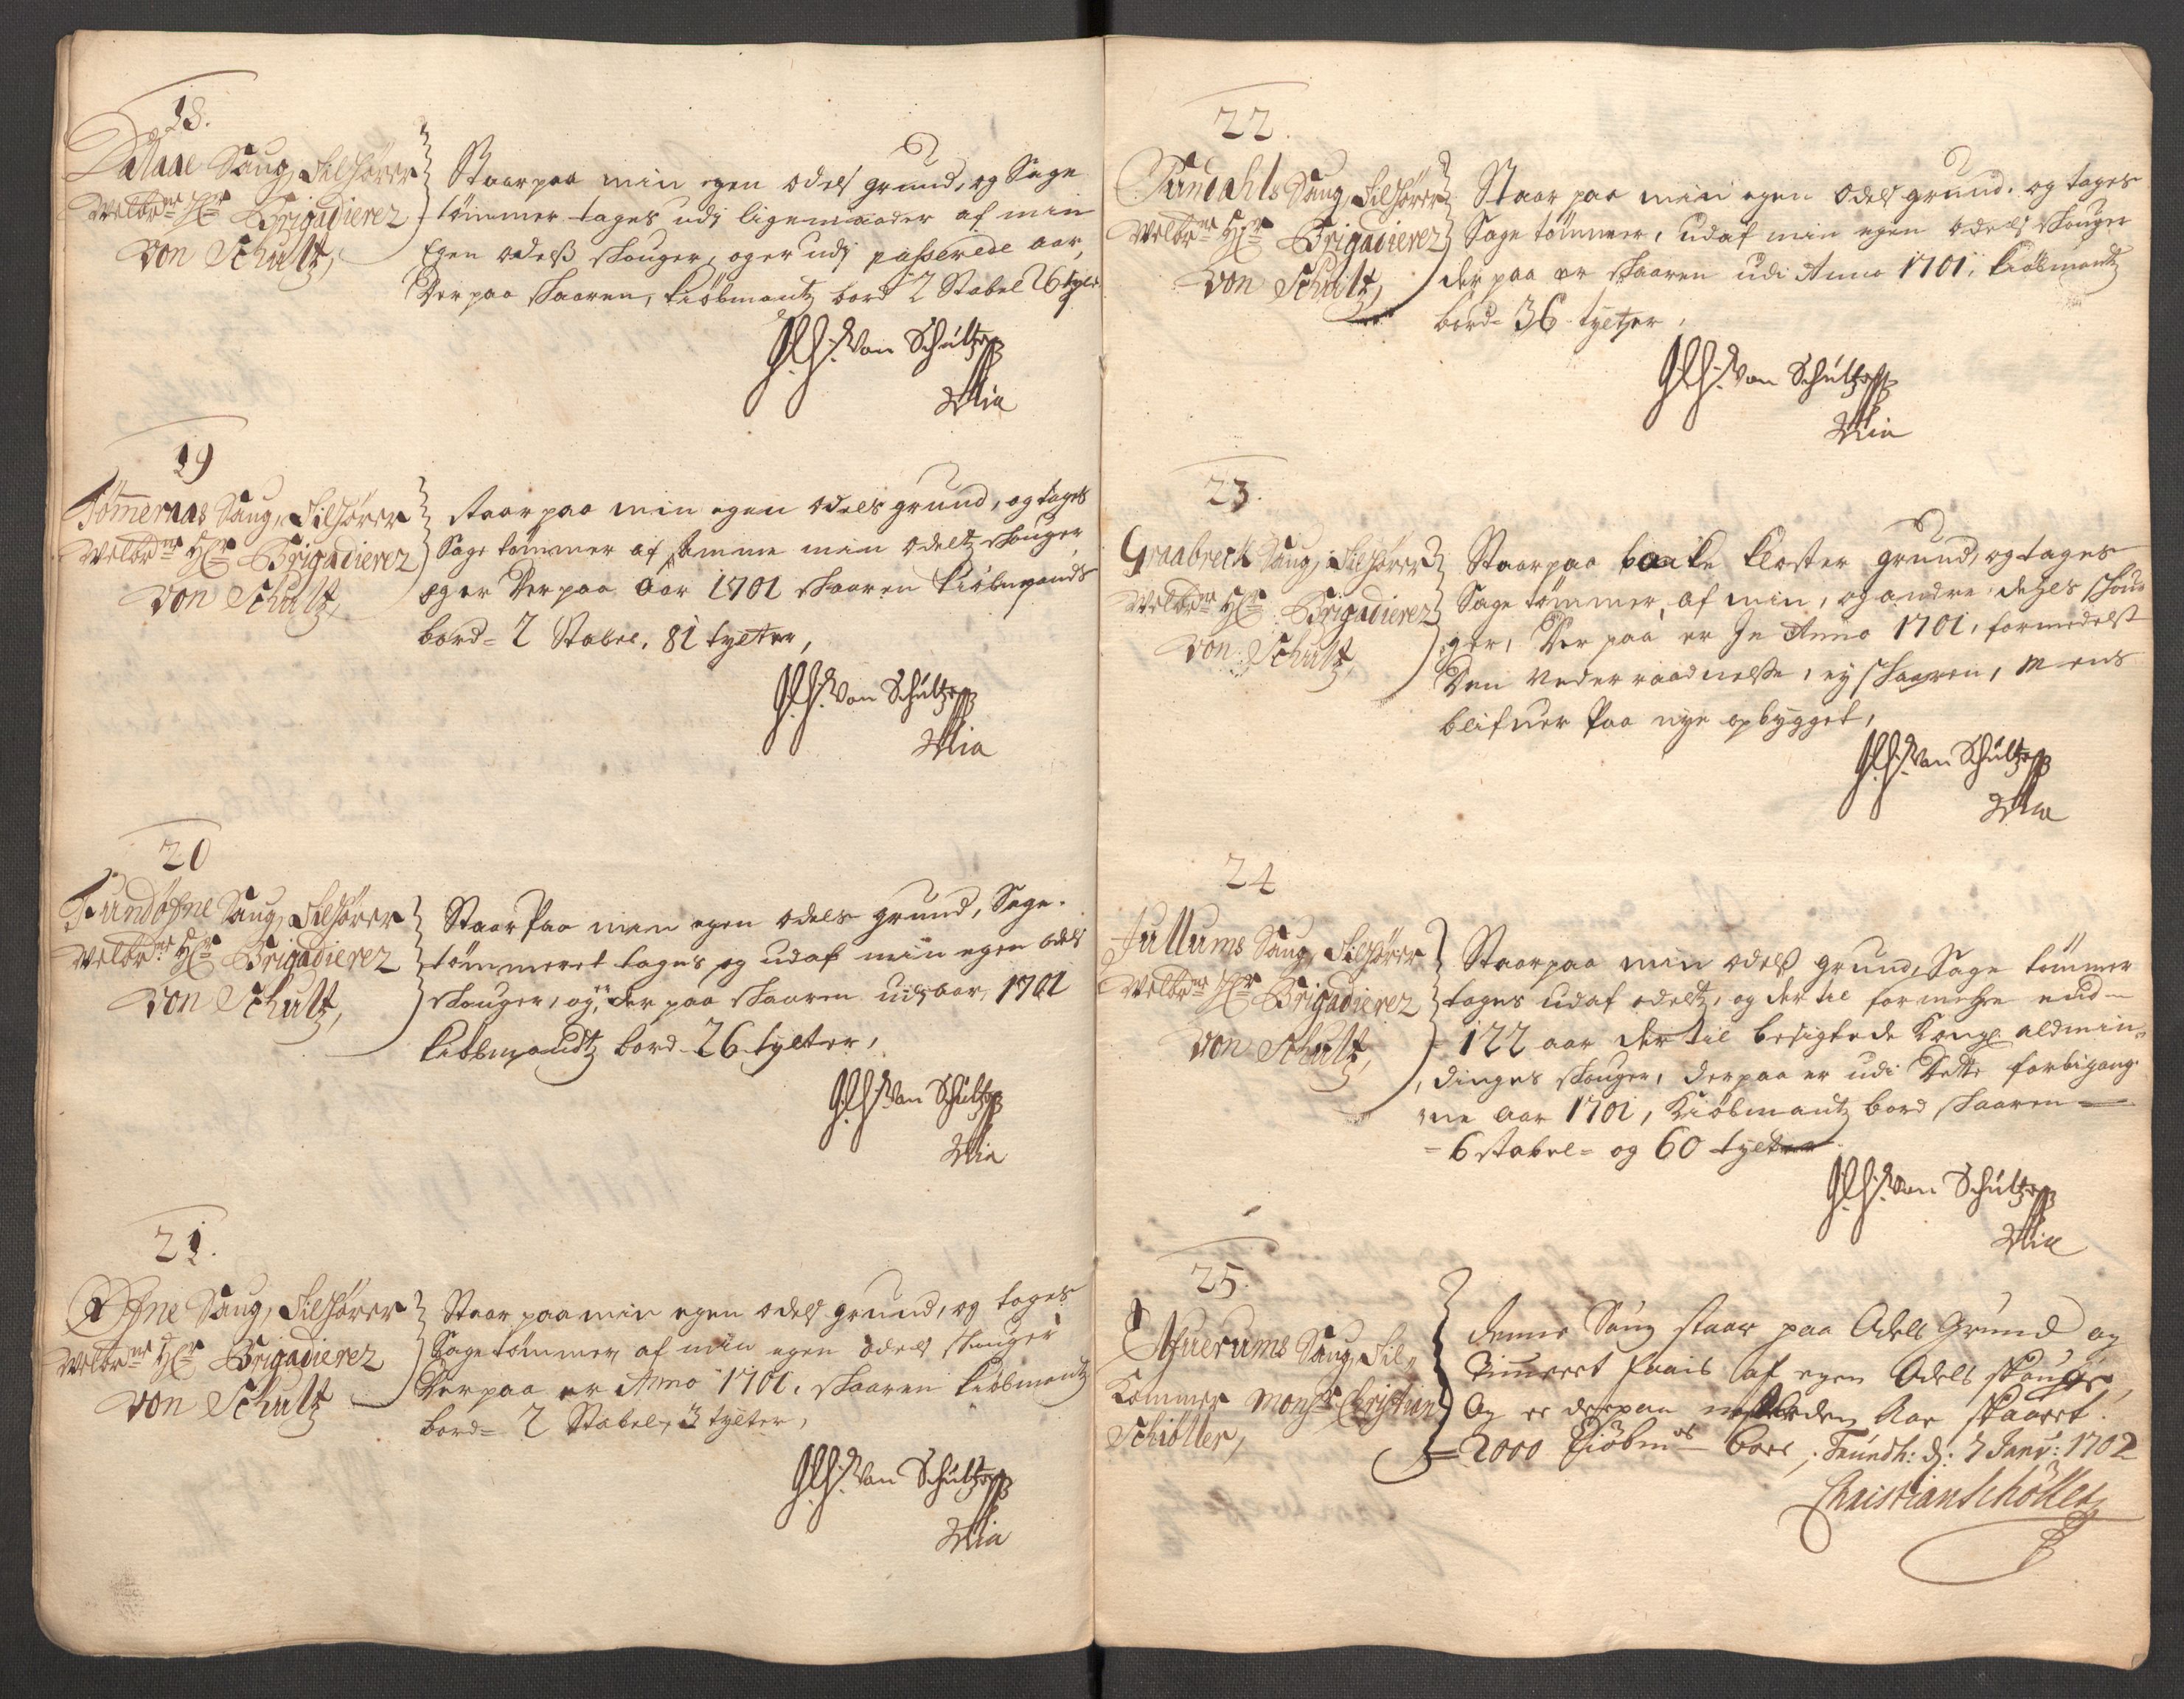 18.
Saug, Tilhører
Welbr. Hr. Brigadierer
von Schultz,
Staar paa min egen odels grund, og Sage
tømmer tages udj ligemaader af min
Egen odelß skouger, og er udj passerede aar,
Der paa skaaren, kiøbmantz bord 2 Stabel 26 tylt
von Schultz
Mia
19
Tömeraas Saug, Tilhører
Welbr. Hr. Brigadierer
von Schultz,
staar paa min egen odels grund, og tages
Sage tømmer af samme min odeltz skouger
og er Der paa Aar 1701 skaaren kiøbmands
bord= 2 Stabel, 81 tylter,
von Schultz
Mia
20
Saug, Tilhører
Welbr. Hr. Brigadierer
von Schultz,
Staar Paa min egen odels grund, Sage-
tømmeret tages og udaf min egen odels
skouger, og er der paa skaaren udj aar 1701
kiøbmandtz bord 26 tylter,
von Schultz
Mia
21.
Saug, Tilhører
Welbr. Hr. Brigadierer
von Schultz
Staar paa min egen odels grund, og tages
Sagetømmer af min egen odels skouger
Der paa er Anno 1701, skaaren kiøbmantz
bord= 2 Stabel, 3 tylter,
von Schultz
Mia
22.
Sundahls Saug, Tilhører
Welbr. Hr. Brigadierer
von Schultz,
Staar paa min egen odels grund, og tages
Sage tømmer, udaf min egen odels skouger
der paa er skaaren udi Anno 1701, kiøbmantz
bord= 36 tylter,
von Schultz
Mia
23.
Graabreck Saug, Tilhører
Welbr. Hr. Brigadierer
von Schultz
Staar paa bache kloster grund, og tages
Sage tømmer, af min, og andre skou
ger, Der paa er Jn Anno 1701, formedelst
Den Nederraadnelse, ey skaaren, mens
blifuer Paa nye opbygget,
von Schultz
Mia
24
Jullums Saug, Tilhører
Welbr. Hr. Brigadierer
von Schultz,
Staar paa min odelß grund, Sage tømmer
tages udaf odeltz, og der til
122 aar der til besigtede Kongl. aldmin-
dinges skouger, der paa er udi Dette forbigang
ne Aar 1701, Kiøbmantz bord skaaren
= 6 stabel= og 60 tylter
von Schultz
Mia
25.
Saug, Til,
Kommer Monsr. Christian
Schiøller,
Denne Saug staar paa Odels Grund og
Timret af egen Odels skouge,
Og er derpaa Aar skaaret
= 2000 Kiøbm bord, Trundh: d: 7 Janv: 1702
Christian Schöller